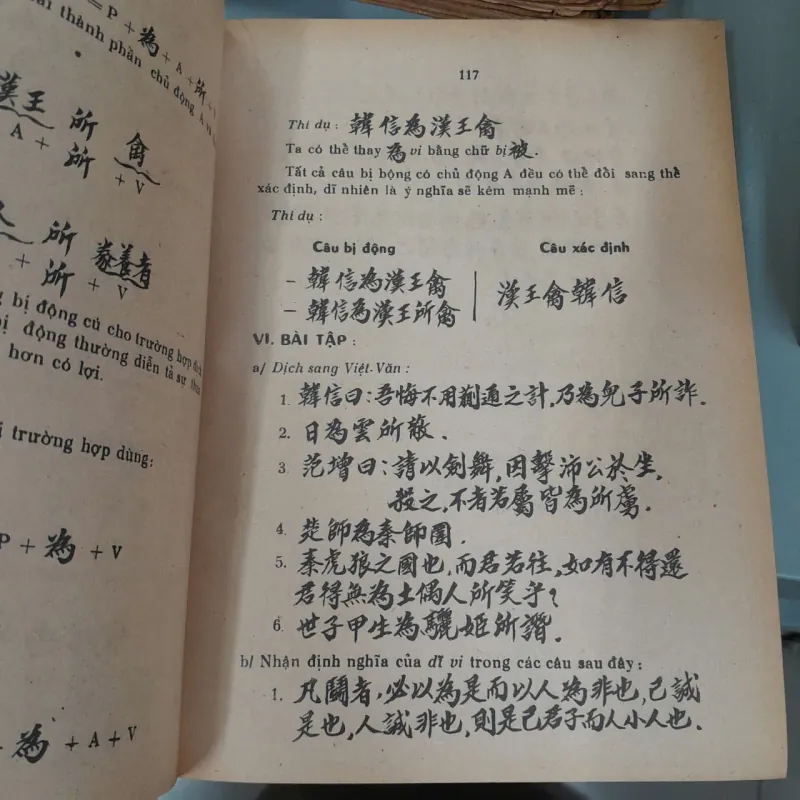 = P + 為 + A + 所 +
thành phần chủ động A
漢王 所 禽
A + 所 + V
所 豢養者
+ 所 + V
bị động cú cho trường hợp
động thường diễn tả sự
hơn có lợi.
trường hợp dùng:
P + 為 + V
為 + A + V
117
Thí dụ : 韓信為漢王禽
Ta có thể thay 為 vi bằng chữ bị 被.
Tất cả câu bị bộng có chủ động A đều có thể đổi sang thể
xác định, dĩ nhiên là ý nghĩa sẽ kém mạnh mẽ :
Thí dụ :
Câu bị động Câu xác định
– 韓信為漢王禽 漢王禽韓信
– 韓信為漢王所禽
VI. BÀI TẬP :
a/ Dịch sang Việt-Văn :
1. 韓信曰:吾悔不用蒯通之計,乃為兒子所詐.
2. 日為雲所蔽.
3. 范增曰:請以劍舞,因擊沛公於坐,
殺之,不者若屬皆為所虜.
4. 楚師為秦師圍.
5. 秦虎狼之國也,而君若往,如有不得還
君得無為土偶人所笑乎?
6. 世子甲生為驪姬所譖.
b/ Nhận định nghĩa của dĩ vi trong các câu sau đây :
1. 凡鬬者,必以為是而以人為非也,己誠
是也,人誠非也,則是己君子而人小人也.